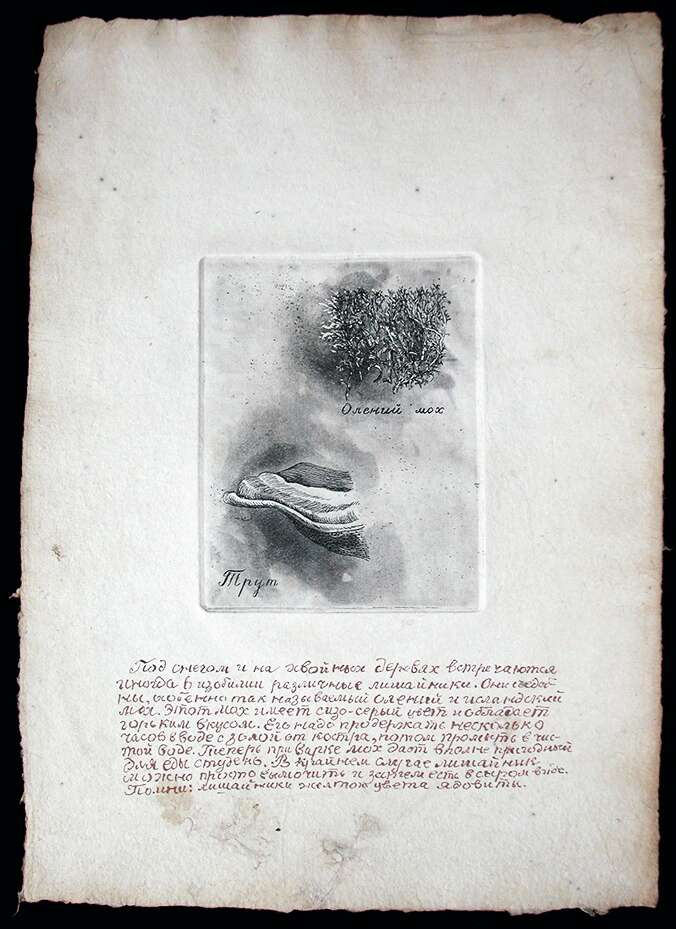 Олений мох
Трут
Под снегом и на хвойных деревях встречаются
иногда в изобилии различные лишайники. Они съедоб-
ны, особенно так называемый олений и исландский
мох. Этот мох имеет сизо-серый цвет и обладает
горьким вкусом. Его надо продержать несколько
часов в воде с золой от костра, потом промыть в чис-
той воде. Теперь при варке мох даст вполне пригодный
для еды студень. В крайнем случае лишайник
можно просто вымочить и затем есть в сыром виде.
Помни: лишайники желтого цвета ядовиты.